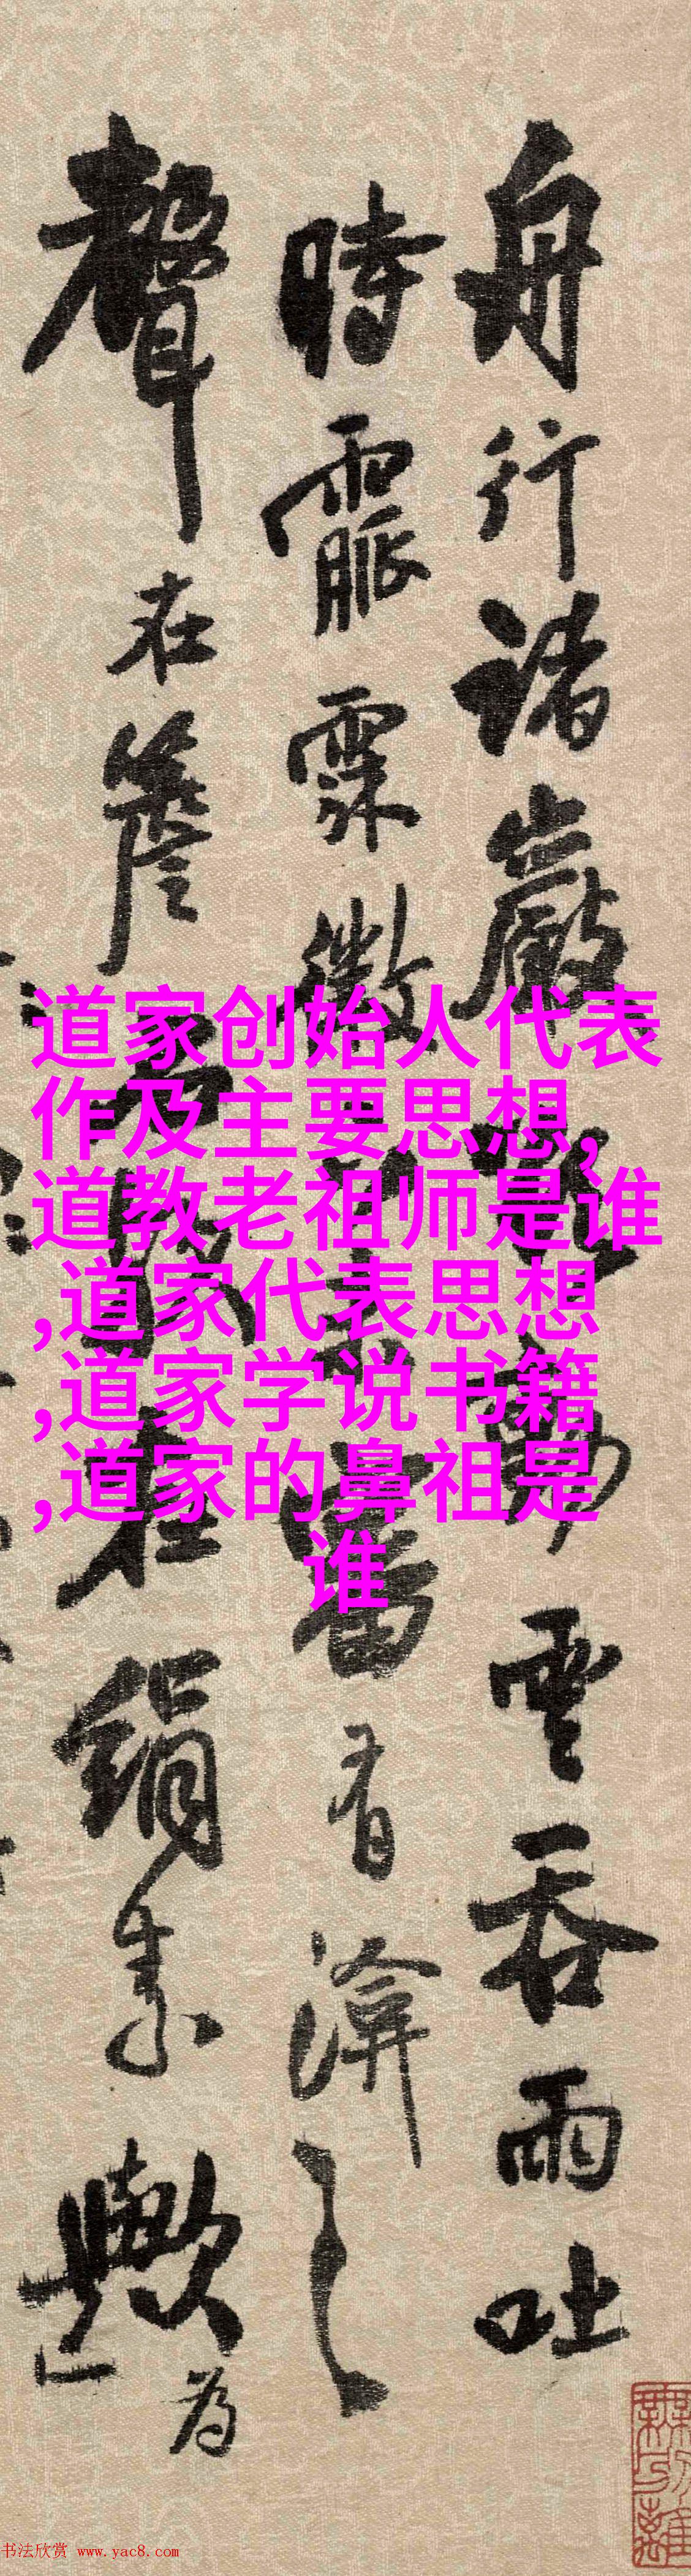 舟行諸巖
雲吞雨吐
時霢霂微
有渰之
聲在簷
在絹素
歟為
道家创始人代表
作及主要思想,
道教老祖师是谁
,道家代表思想
,道家学说书籍
,道家的鼻祖是
谁
书法欣赏 www.yac8.com